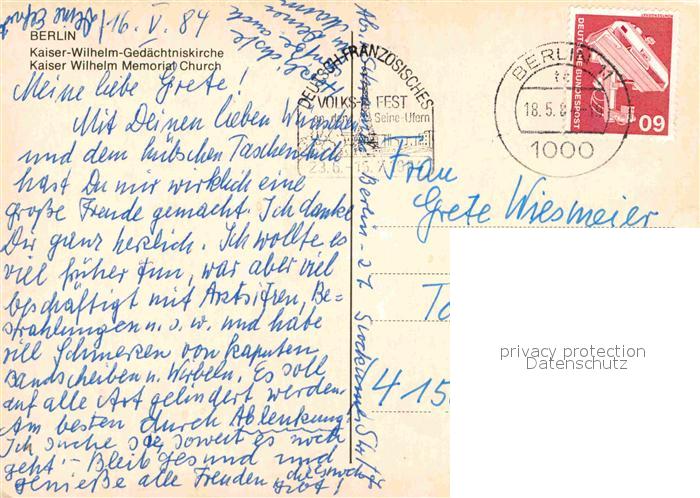 16. V. 84
BERLIN
Kaiser-Wilhelm-Gedächtniskirche
Kaiser Wilhelm Memorial Church
Meine liebe Grete!
Mit Deinen lieben Wünschen
und dem hübschen Taschentuch
hast Du mir wirklich eine
große Freude gemacht. Ich danke
Dir ganz herzlich. Ich wollte es
viel früher tun, war aber viel
beschäftigt mit Arztsitzen, Be=
strahlungen u. s. w. und habe
viel Schmerzen von kaputen
Bandscheiben u. Wirbeln. Es soll
auf alle Art gelindert werden.
Am besten durch Ablenkung!
Ich suche sie soweit es noch
geht. – Bleib gesund und
genieße alle Freuden, die es noch
gibt!
Berlin - 27
DEUTSCH-FRANZÖSISCHES
VOLKSFEST
Seine-Ufern
DEUTSCHE BUNDESPOST
60
BERLIN 11
18.5.8
1000
Frau
Grete Wiesmeier
415
privacy protection
Datenschutz